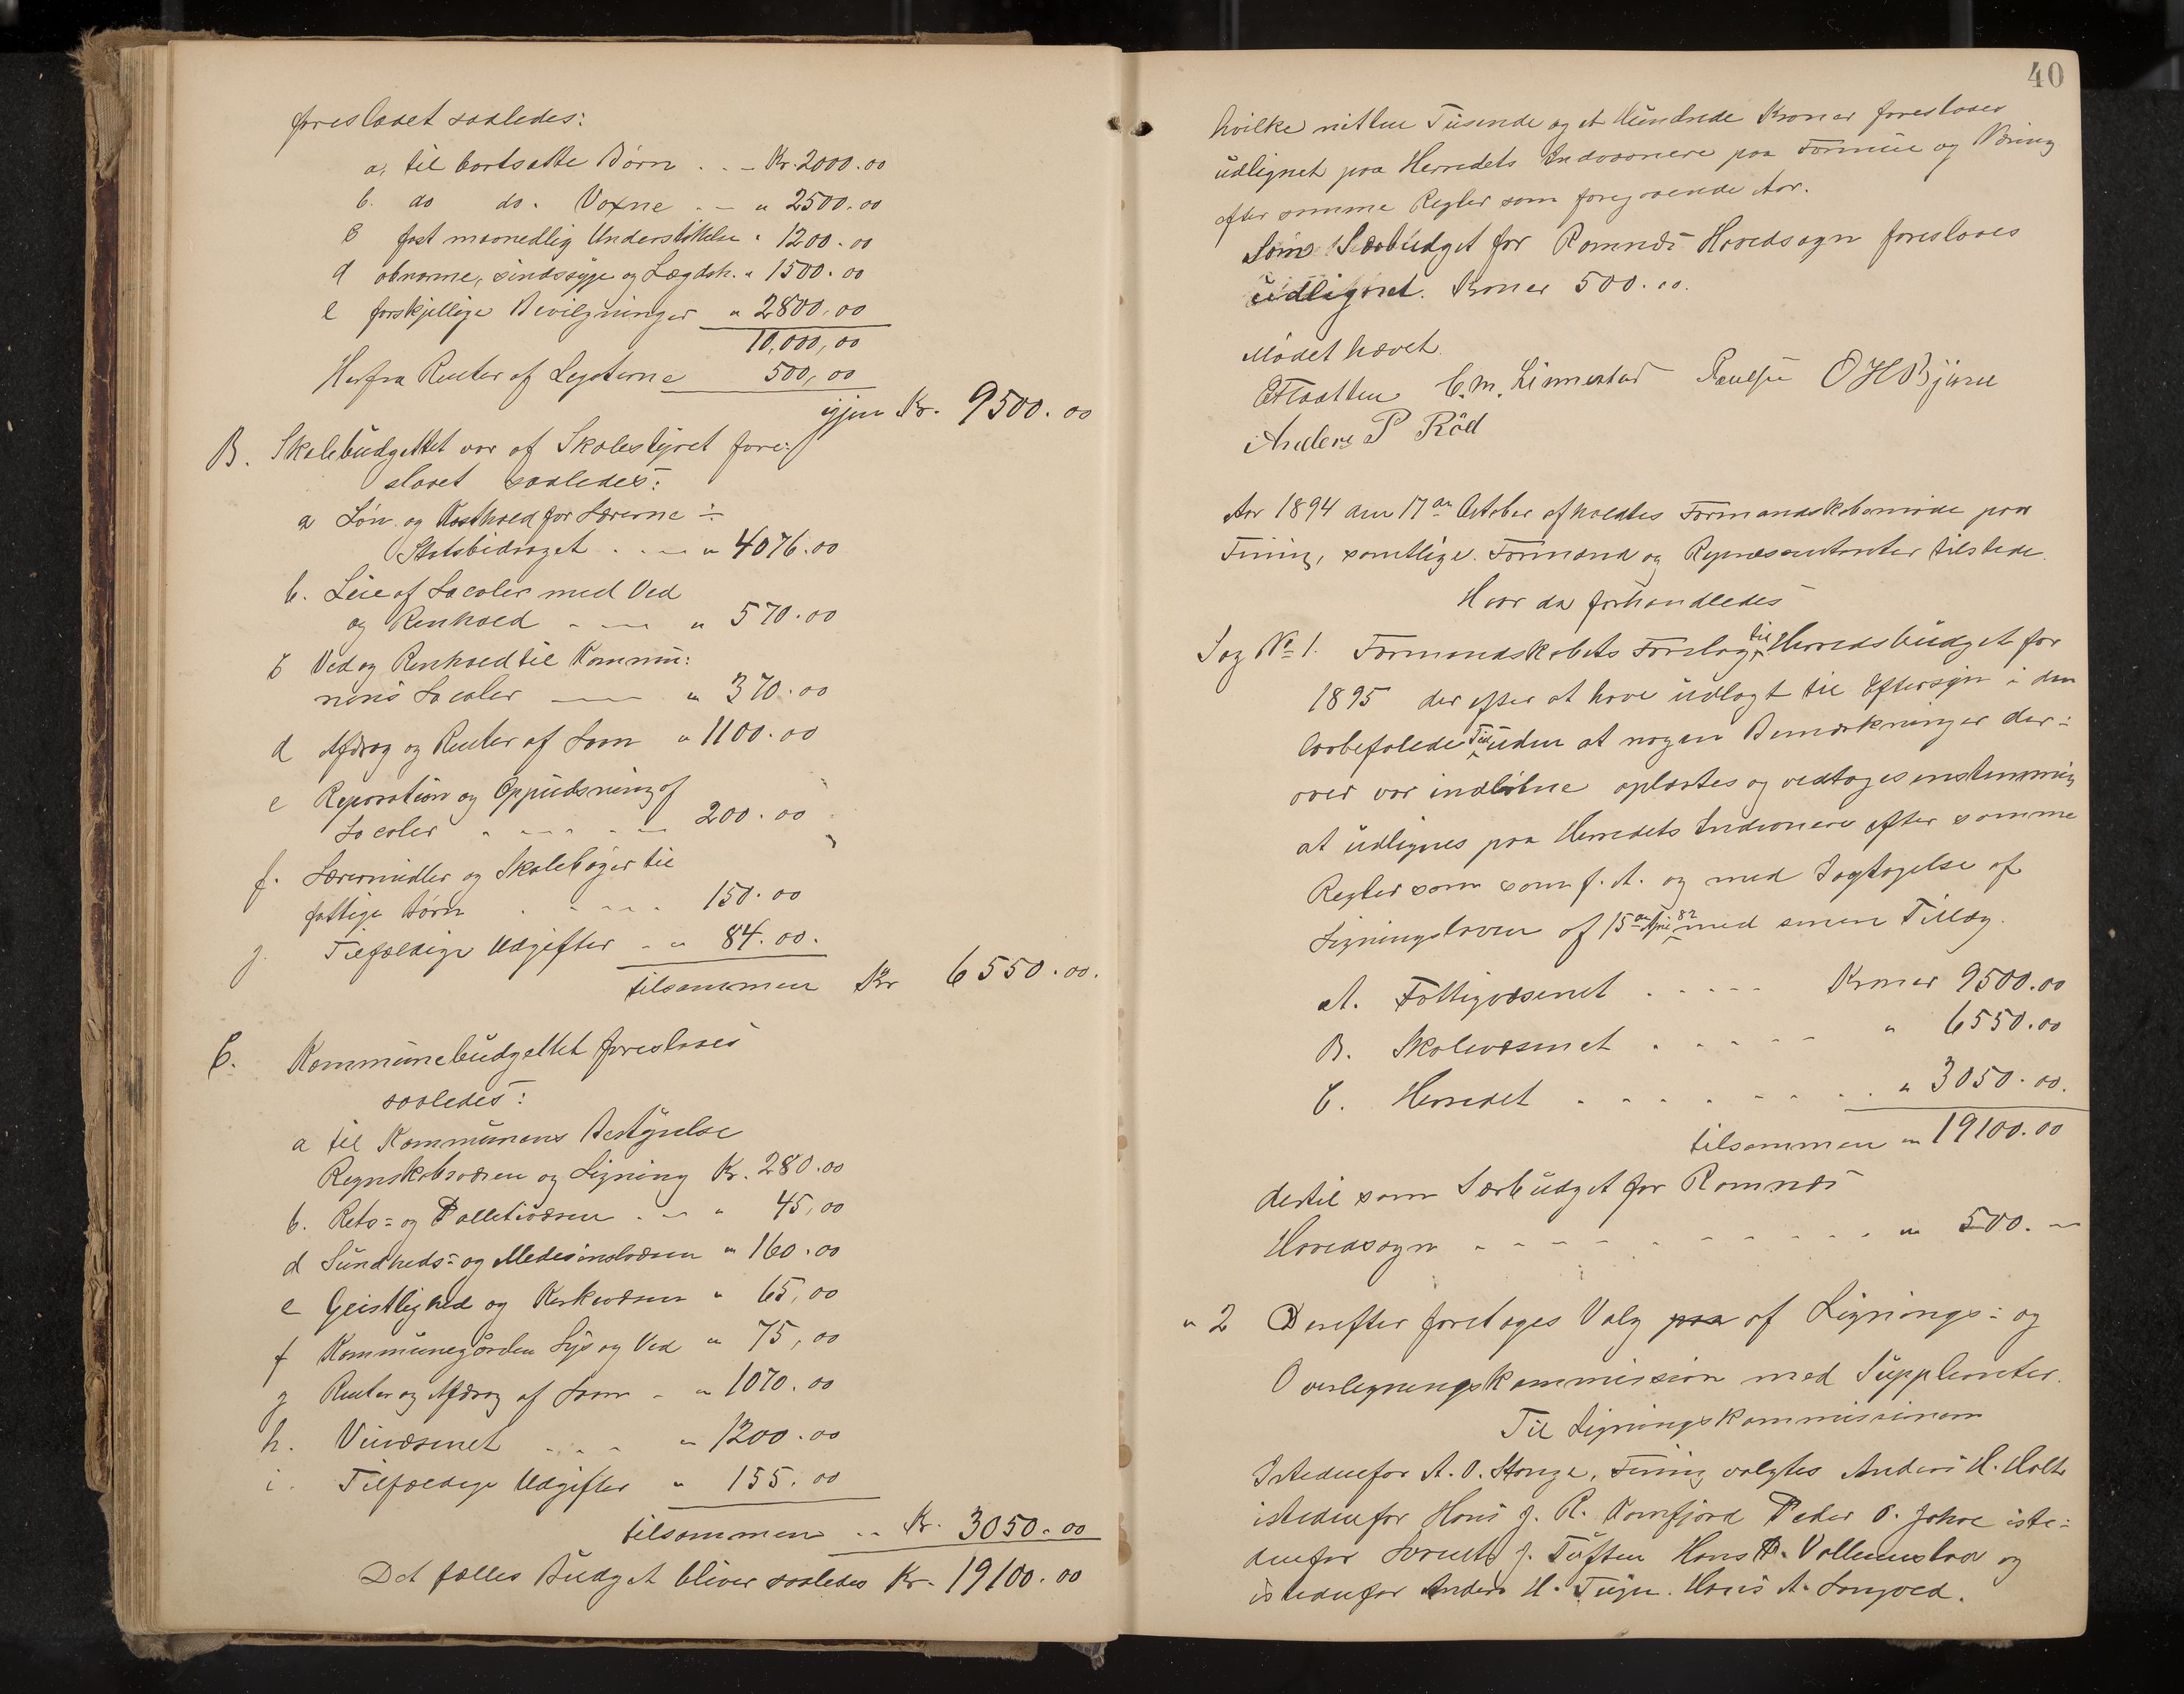 foreslaaet saaledes:
a, til bortsatte Børn . . – Kr. 2000.00
b. do do. Voxne . – " 2500.00
c fast maanedlig Understøttelse " 1200.00
d abnorme, sindssyge og Lægdsh. " 1500.00
e forskjellige Bevilgninger " 2800.00
10,000,00
Herfra Renter af Legaterne 500,00
igjen Kr. 9500.00
B. Skolebudgettet var af Skolestyret fore-
slaaet saaledes:
a Løn og Kosthold for Lærerne ÷
Statsbidraget . . – " 4076.00
b. Leie af Locoler med Ved
og Renhold - — " 570.00
c Ved og Renhold til Kommu:
nens Locoler — " 370.00
d Afdrag og Renter af Laan " 1100.00
e Reparation og Oppudsning af
Locoler - - - - 200.00
f. Læremidler og Skolebøger til
fattige Børn . - - - 150.00
g. Tilfældige Udgifter - " 84.00.
tilsammen Kr 6550.00.
C. Kommunebudgettet foreslaaes
saaledes:
a til Kommunens Bestyrelse
Regnskabsvæsen og Ligning Kr. 280.00
b. Rets= og Polletivæsen . – " 45,00
d Sundheds= og Medesinalvæsen " 160.00
e Geistlighed og Kirkevæsen " 65,00
f Kommunegården Lys og Ved " 75,00
g Renter og Afdrag af Laan - " 1070.00
h. Veivæsenet - - - " 1200.00
i. Tilfældige Udgifter " 155.00
tilsammen -- Kr. 3050.00
Det fælles Budget bliver saaledes Kr. 19100.00
40
hvilke nitten Tusende og et Hundrede Kroner foreslaaes
udlignet paa Herredets Indvaanere paa Formue og Næring
efter samme Regler som foregaaende Aar.
Som Særbudget for Romnes Hovedsogn foreslaaes
udlignet. Kroner 500.00.
Mødet hævet.
C. M. Linnestad Paulsen O H Bjerve
Anders P Röd
Aar 1894 den 17de October afholdtes Formandskabsmøde paa
Fining, samtlige Formænd og Repræsentanter tilstede.
Hvor da forhandledes
Sag No 1. Formandskabets Forslag til Herredsbudget for
1895 der efter at have udlagt til Eftersyn i den
lovbefalede Tid uden at nogen Bemærkninger der=
over var indløbne oplæstes og vedtoges enstemmig
at udlignes paa Herredets Indvonere efter samme
Regler som som f. A. og med Iagtagelse af
Ligningsloven af 15de April 82 med senere Tillæg.
A. Fattigvæsenet . - - - - Kroner 9500.00
B. Skolevæsenet . - - - - " 6550.00
C. Herredet - - - - - - . . " 3050.00.
tilsammen " 19100.00
dertil som Særbudget for Romnes
Hovedsogn - - - - - - - - - - " 500. —
" 2 Derefter foretages Valg paa af Lignings= og
Overlegningskommission med Suppleanter.
Til Ligningskommissionen
Istedenfor A. O. Stange, Fining valgtes Anders H. Holte
istedenfor Hans J. R. Komfjord Peder O. Johre iste=
denfor Laurits J. Tuften Hans P. Vallumstad og
istedenfor Anders H. Tugn. Hans A. Langved.